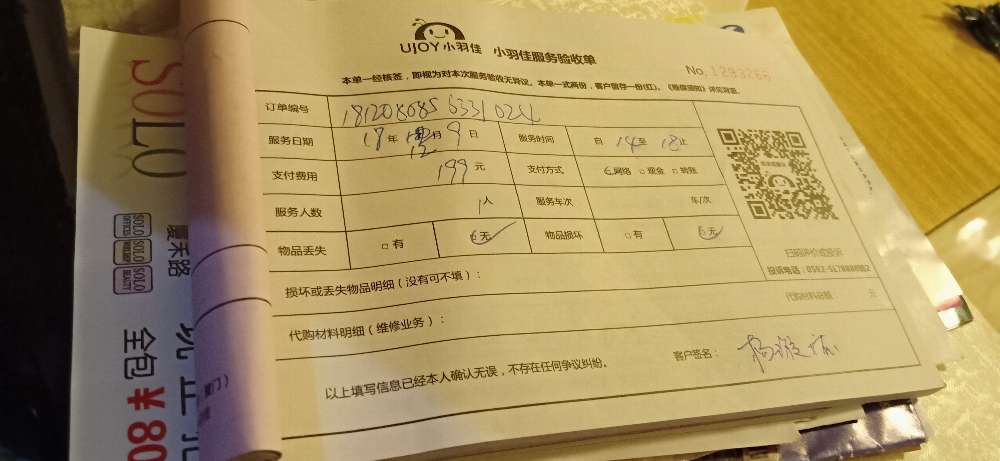 UJOY 小羽佳 小羽佳服务验收单
No. 1293266
本单一经核签,即视为对本次服务验收无异议。本单一式两份,客户留存一份(红)。
订单编号
服务日期 年 12月 9日 服务时间 自 14至 18止
支付费用 199元 支付方式 网络 □现金 □转账
服务人数 1人 服务车次 车/次
物品丢失 □有 无 物品损坏 □有 无
扫码评价或投诉
损坏或丢失物品明细(没有可不填):
代购材料明细(维修业务): 代购材料总额: 元
以上填写信息已经本人确认无误,不存在任何争议纠纷。 客户签名:
SOLO
SOLO
SOLO
SOLO
夏禾路
全包¥80